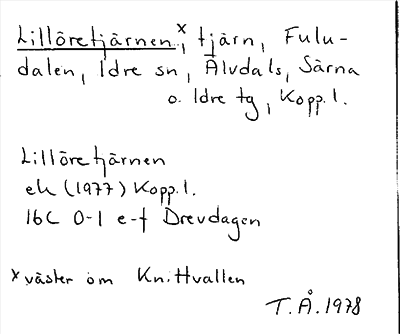 Lillöretjärnen,ˣ tjärn, Fulu-
dalen, Idre sn, Älvdals, Särna
o. Idre tg, Kopp.l.
Lillöretjärnen
ek (1977) Kopp.l.
16C 0-1 e-f Drevdagen
x väster om Knittvallen
T.Å.1978